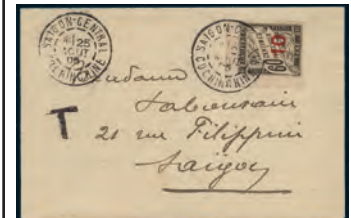 SAIGON-CENTRAL
25
AOUT
05
COCHINCHINE
SAIGON-CENTRAL
COCHINCHINE
10
60
T
Madame
21 rue Filippini
Saigon